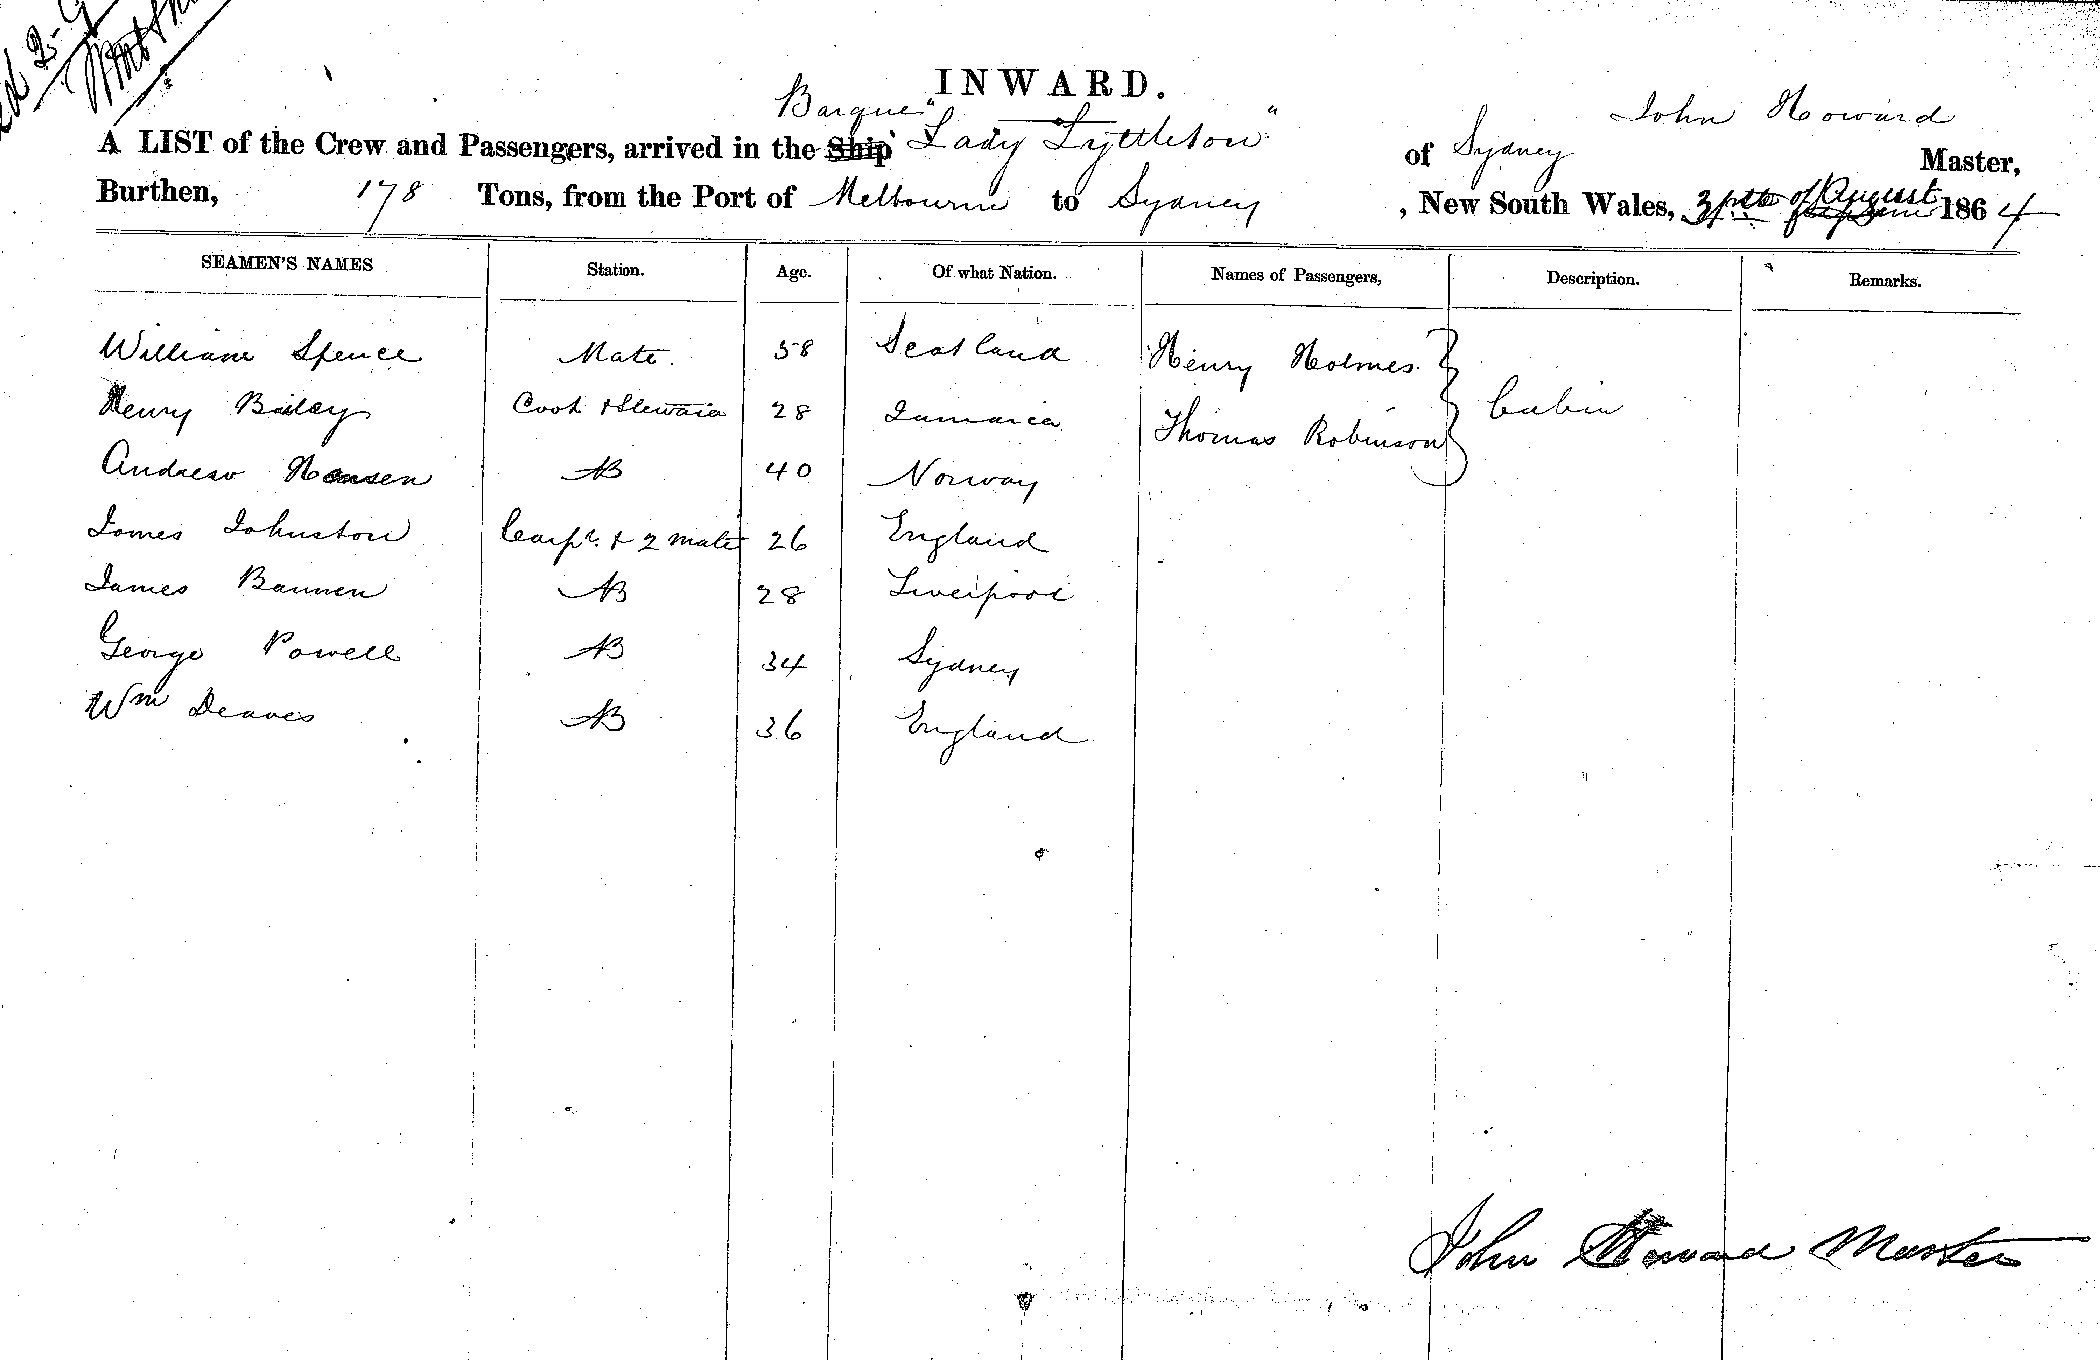 INWARD.
Barque "Lady Lyttleton"
A LIST of the Crew and Passengers, arrived in the Ship of Sydney John Howard Master,
Burthen, 178 Tons, from the Port of Melbourne to Sydney, New South Wales, of August 1864
SEAMEN'S NAMES Station. Age. Of what Nation. Names of Passengers, Description. Remarks.
William Spence Mate. 58 Scotland Henry Holmes Cabin
Henry Bailey Cook & Steward 28 Jamaica Thomas Robinson
Andrew Hansen AB 40 Norway
James Johnston Carpr. & 2 mate 26 England
James Bannen AB 28 Liverpool
George Powell AB 34 Sydney
Wm Deaves AB 36 England
John Howard Master